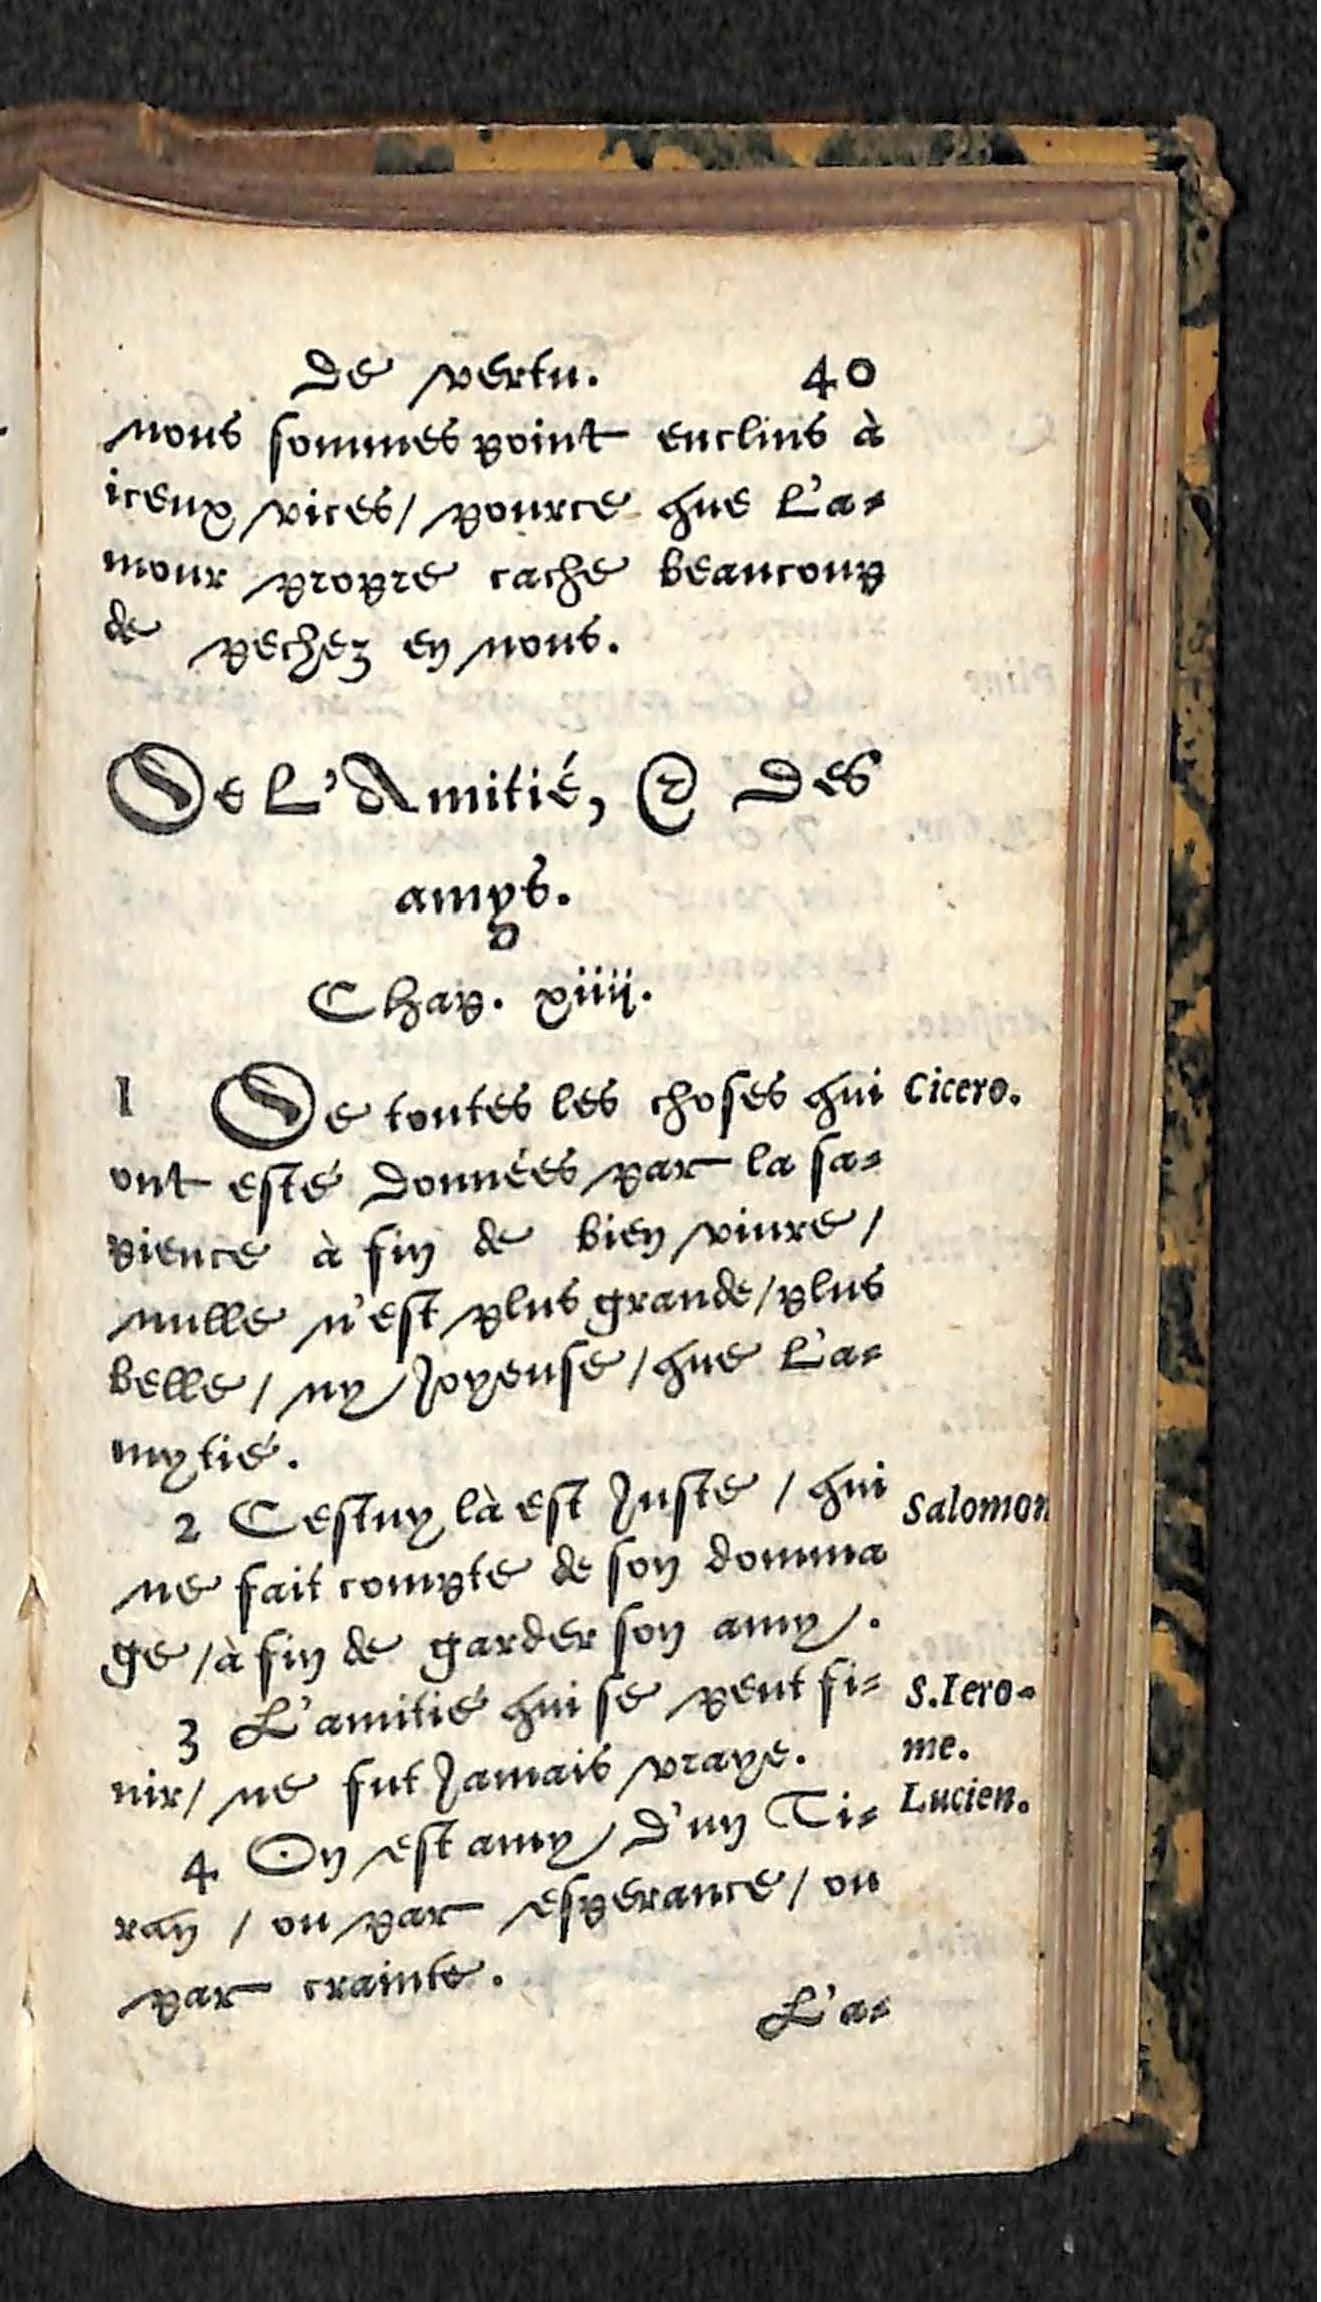 de vertu. 40
nous sommes point enclins à
iceux vices/ pource que l'a=
mour propre cache beaucoup
de pechez en nous.
De l'Amitié, & des
amys.
Chap. xiiij.
1 De toutes les choses qui
Cicero.
ont esté données par la sa=
pience à fin de bien vivre/
nulle n'est plus grande/plus
belle/ ny Joyeuse/que l'a=
mytié.
2 Cestuy là est Juste/ qui
Salomon
ne fait compte de son domma
ge/à fin de garder son amy.
3 L'amitié qui se peut fi=
S.Iero-
me.
nir/ ne fut Jamais vraye.
4 On est amy d'un Ti=
Lucien.
ran/ ou par esperance/ ou
par crainte.
L'a=